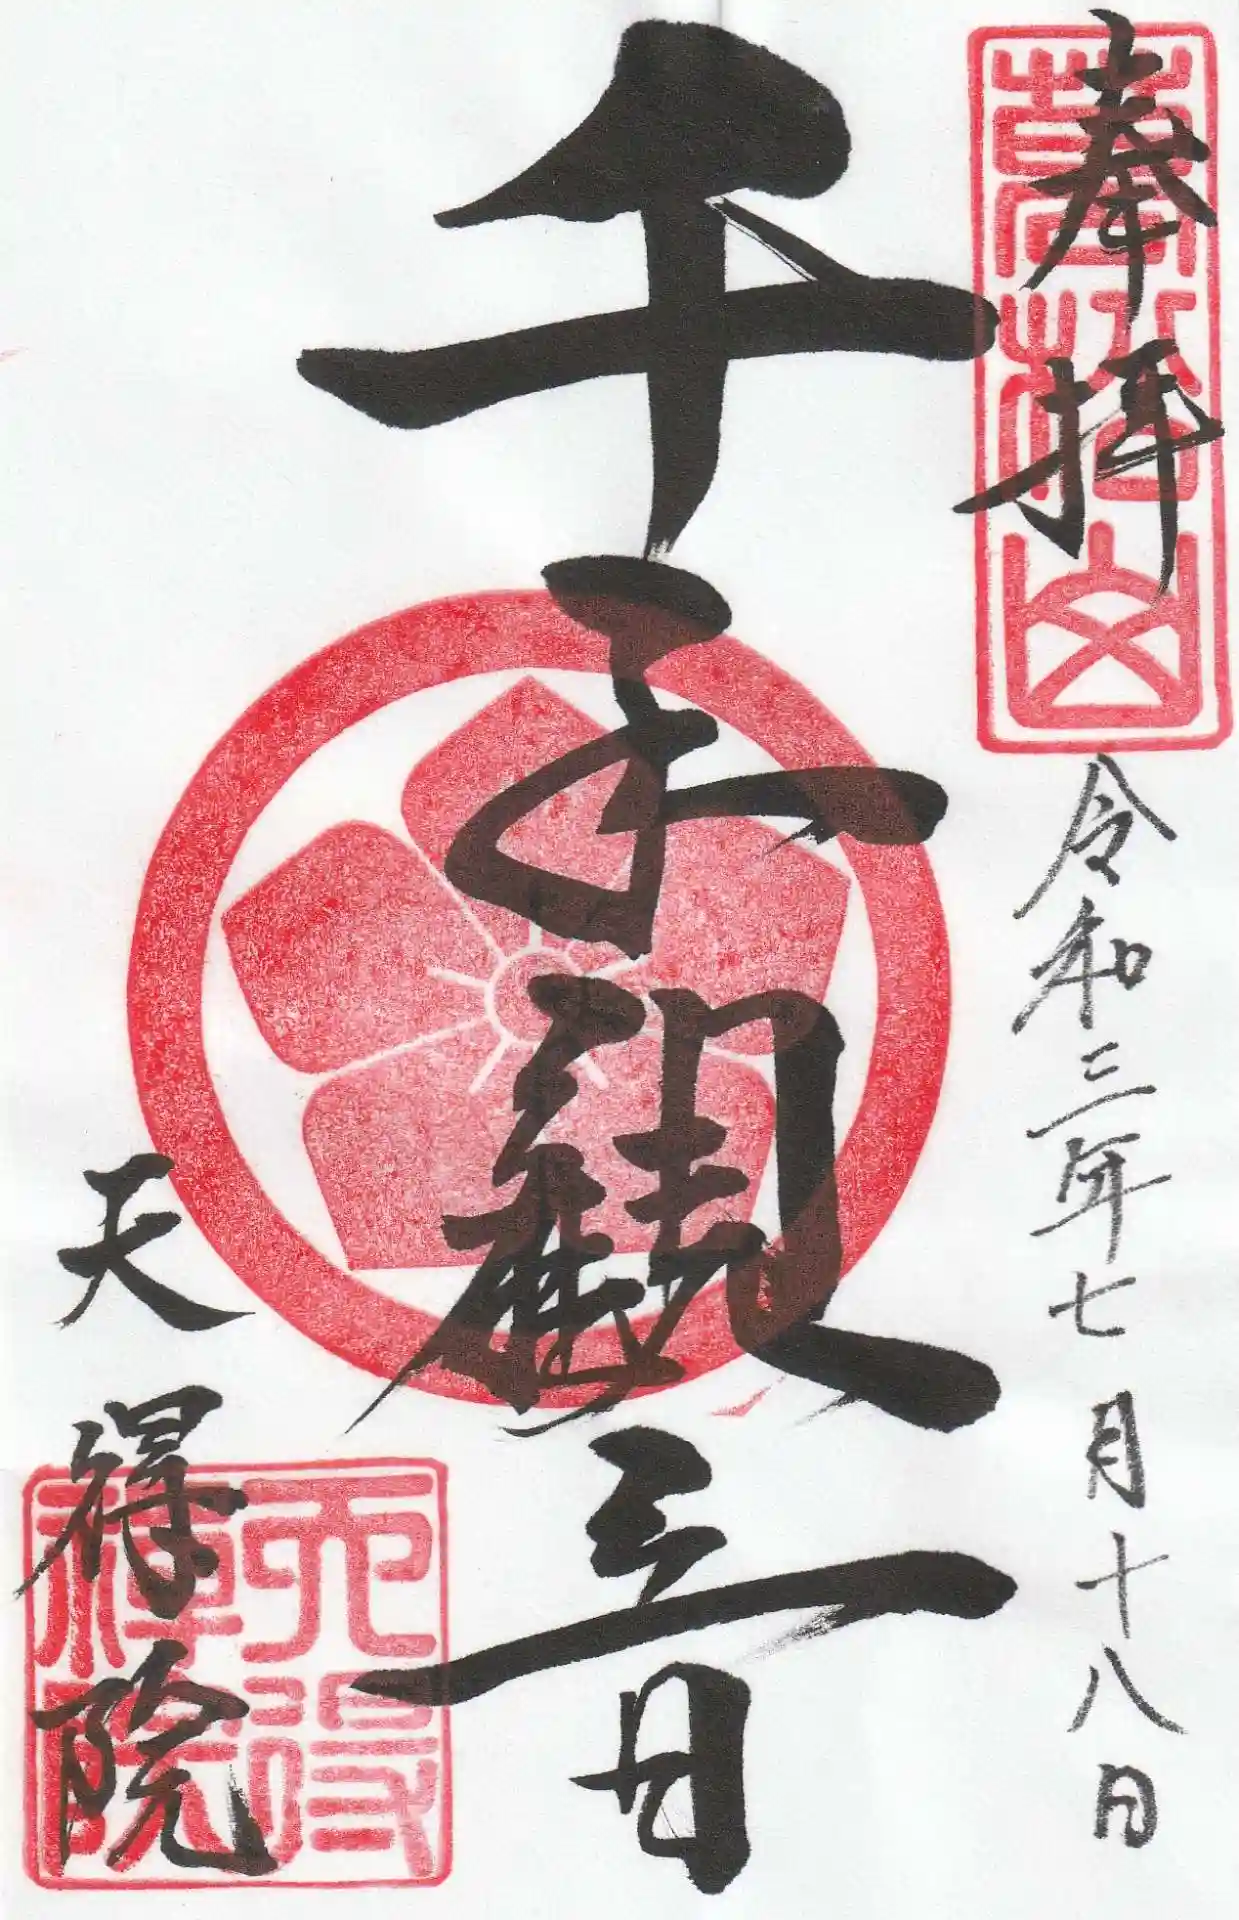 奉拝
萬松山
令和三年七月十八日
千手觀音
天得院
天得
禪院